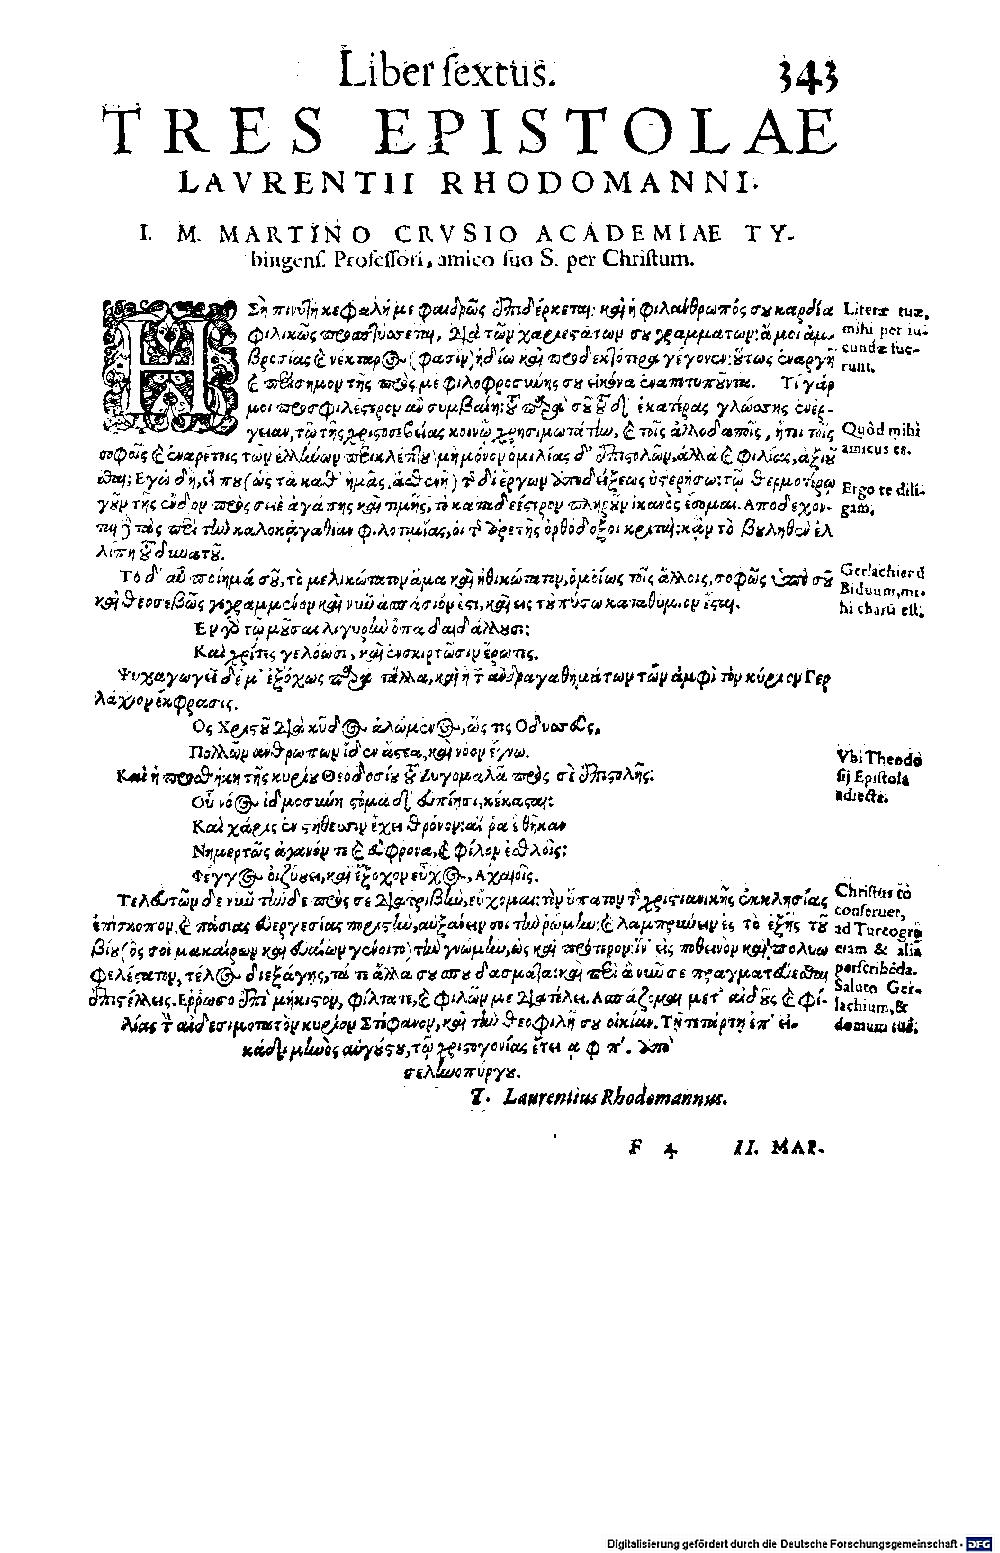 Liber sextus. 343
TRES EPISTOLAE
LAVRENTII RHODOMANNI.
I. M. MARTINO CRVSIO ACADEMIAE TY-
bingens. Professori, amico suo S. per Christum.
Η ΣΗ πινυτὴ κεφαλή με φαιδρῶς ἐπιδέρκεται: καὶ ἡ φιλάνθρωπός σου καρδία
φιλικῶς, διὰ τῶν χαριεστάτων σου γραμμάτων: ἅ μοι ἀμ-
βροσίας καὶ νέκταρος (φασὶν) ἡδίω καὶ γέγονεν: οὕτως ἐναργῆ
καὶ ἐπίσημον τῆς πρός με φιλοφροσύνης σου εἰκόνα. Τί γάρ
μοι προσφιλέστερον ἂν συμβαίη: ἑκατέρας γλώσσης ἐνέρ-
γειαν, τῷ τῆς χριστοσεβείας κοινῷ χρησιμωτάτην, καὶ τοῖς ἀλλοδαποῖς, τοῖς
σοφοῖς καὶ ἐναρέτοις τῶν ἑλλήνων μὴ μόνον ὁμιλίας δι' ἐπιστολῶν, ἀλλὰ καὶ φιλίας,
Ἐγὼ δὴ, εἴ που (ὡς τὰ καθ' ἡμᾶς, ἀσθενῆ) τῷ θερμοτέρῳ
γοῦν τῆς ἔνδον πρὸς σὲ ἀγάπης καὶ τιμῆς, τὸ καταδεέστερον πληροῦν ἱκανὸς ἔσομαι. Ἀποδέχον-
ται τὴν καλοκἀγαθίαν φιλοτιμίας, οἱ τῆς ἀρετῆς ὀρθόδοξοι κριταὶ: κἂν τὸ βουληθὲν ἐλ
λίπῃ τοῦ δυνατοῦ.
Τὸ δ' αὖ ποίημά σου, τὸ μελικώτατον ἅμα καὶ ἠθικώτατον, ὁμοίως τοῖς ἄλλοις, σοφῶς ὑπὸ σοῦ
καὶ θεοσεβῶς γεγραμμένον καὶ νῦν ἀσπάσιόν ἐστι, καὶ εἰς τοὐπίσω καταθύμιον ἔσται.
Ἐν γὰρ τῷ μοῦσαι λιγυρὴν ὄπα δαιδάλλουσι:
Καὶ χάριτες γελόωσι, καὶ ἐνσκιρτῶσιν ἔρωτες.
Ψυχαγωγεῖ δέ μ' ἐξόχως παρὰ τἄλλα, καὶ ἡ τῶν ἀνδραγαθημάτων τῶν ἀμφὶ τὸν κύριον Γερ
λάχιον ἔκφρασις.
Ὃς Χριστοῦ διὰ κῦδος ἀλώμενος, ὥς τις Ὀδυσσεὺς,
Πολλῶν ἀνθρώπων ἴδεν ἄστεα, καὶ νόον ἔγνω.
Καὶ ἡ προσθήκη τῆς κυρίου Θεοδοσίου τοῦ Ζυγομαλᾶ πρὸς σὲ ἐπιστολῆς:
Οὗ νόος ἰδμοσύνῃ, κέκασται:
Καὶ χάρις ἐν στήθεσσιν ἔχει θρόνον: αἵ ῥα ἔθηκαν
Νημερτῶς ἀγανόν τε καὶ εὔφρονα, καὶ φίλον ἐσθλοῖς:
Φέγγος ὀιζύουσι, καὶ ἔξοχον εὖχος, Ἀχαιοῖς.
Τελευτῶν δὲ νῦν τὴν δὲ πρὸς σὲ διατριβὴν, εὔχομαι: τὸν ὕπατον τῆς χριστιανικῆς ἐκκλησίας
ἐπίσκοπον, καὶ πάσης εὐεργεσίας ποριστὴν, αὐξάνειν σοι τὴν ῥώμην: καὶ λαμπρύνειν ἐς τὸ ἑξῆς τοῦ
βίου (ὅς σοι μακαίρων καὶ εὐαίων γένοιτο) τὴν γνώμην, ὡς καὶ πρότερον: ἵν' εἰς ποθεινὸν καὶ πολυω
φελέστατον τέλος διεξάγῃς, τά τε ἄλλα σου σπουδάσματα: καὶ περὶ ἃ νῦν σε πραγματεύεσθαι
ἐπιστέλλεις. Ἔρρωσο ἐπὶ μήκιστον, φίλτατε, καὶ φιλῶν με διατέλει. Ἀσπάζομαι μετ' αἰδοῦς καὶ φι-
λίας τὸν αἰδεσιμώτατον κύριον Στέφανον, καὶ τὴν θεοφιλῆ σου οἰκίαν. Τῇ τετάρτῃ ἐπ' εἰ-
κάδι μηνὸς αὐγούστου, τῷ χριστογονίας ἔτει α φ π'. Ἀπὸ
σεληνοπύργου.
T. Laurentius Rhodomannus.
F 4 II. MAR.
Literæ tuæ,
mihi per iu-
cundæ fue-
runt.
Quòd mihi
amicus es.
Ergo te dili-
gam.
Gerlachierd
Biduum, mi-
hi charũ est.
Vbi Theodo
sij Epistola
adiecta.
Christus te
conseruet,
ad Turcogrę
ciam & alia
perscribẽda.
Saluto Ger-
lachium, &
domum tuã.
Digitalisierung gefördert durch die Deutsche Forschungsgemeinschaft - DFG